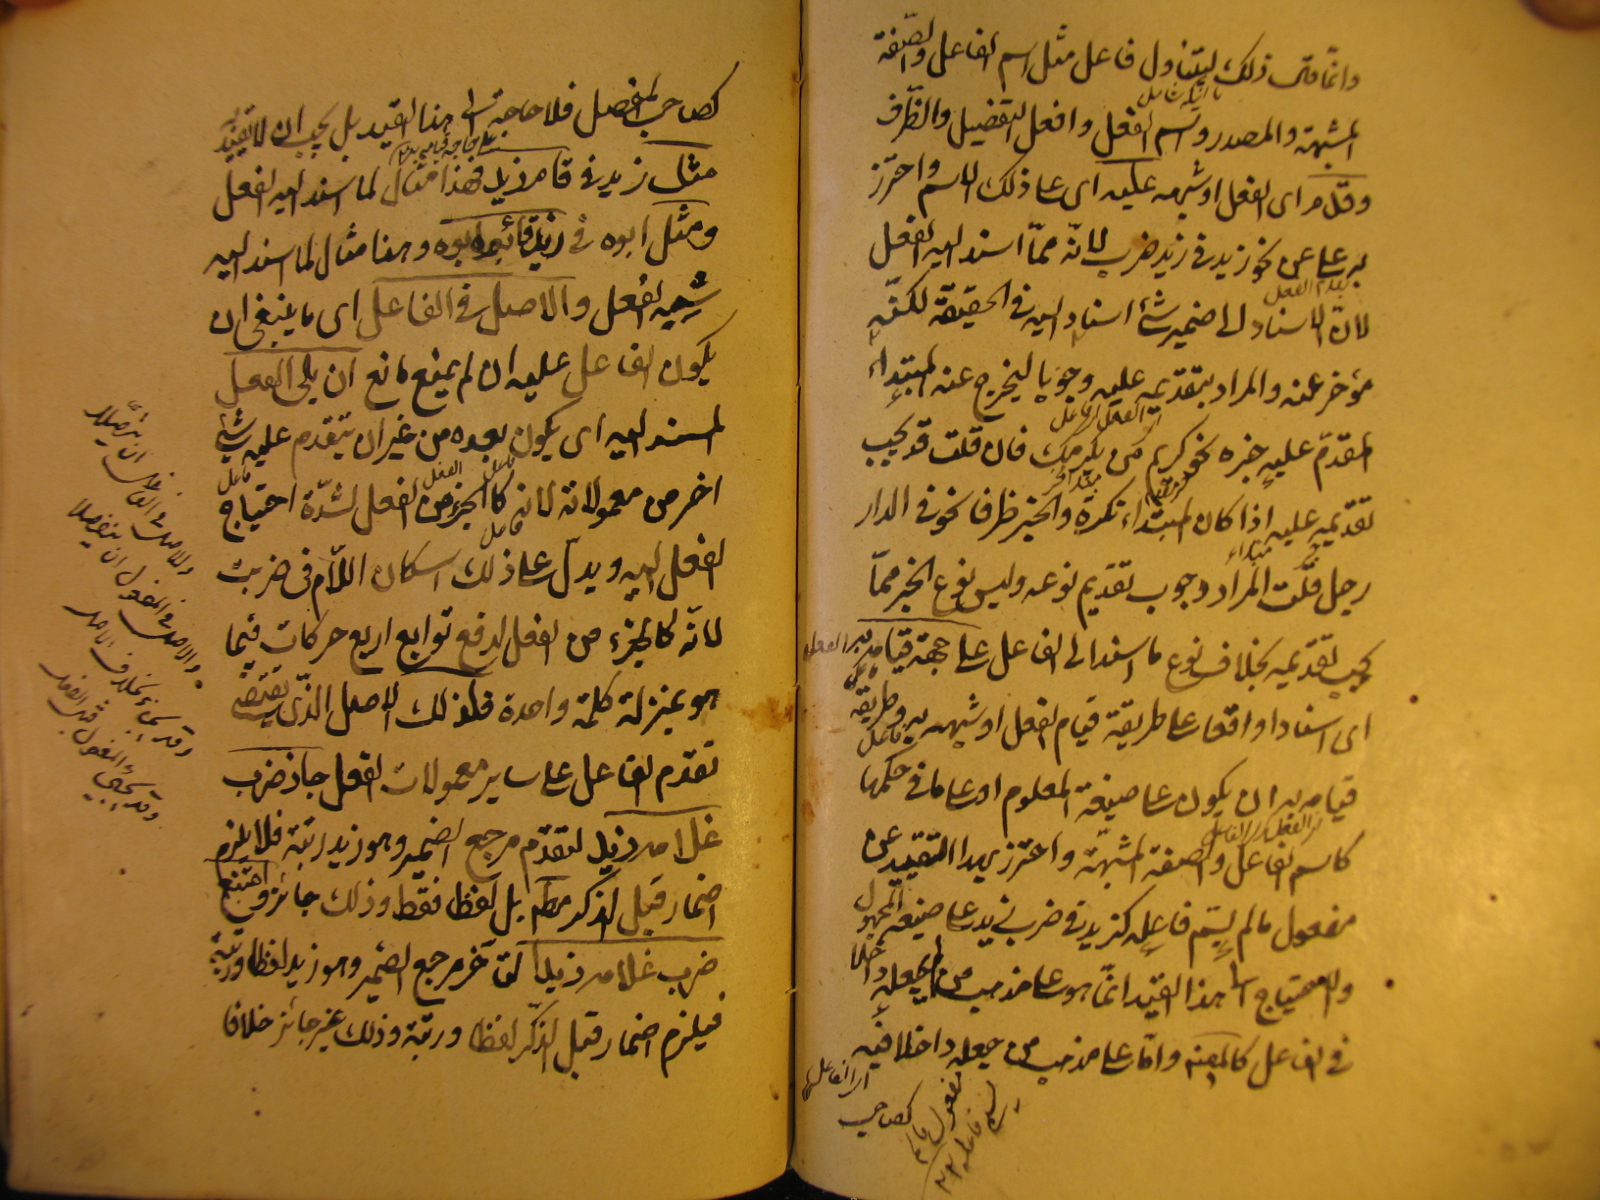 وانما قال ذلك ليتناول فاعل مثل اسم الفاعل والصفة
المشبهة والمصدر واسم الفعل وافعل التفضيل والظرف
وقدم اى الفعل او شبهه عليه اى على ذلك الاسم واحترز
به على عن نحو زيد في زيد ضرب لانه مما اسند اليه الفعل
لان الاسناد الى ضمير شئ اسناد اليه في الحقيقة لكنه
مؤخر عنه والمراد بتقديمه عليه وجوبا ليخرج عنه المبتداء
المقدم عليه خبره نحو كريم من يكرمك فان قلت قد يجب
تقديمه عليه اذا كان المبتداء نكرة والخبر ظرفا نحو في الدار
رجل قلت المراد وجوب تقديم نوعه وليس نوع الخبر مما
يجب تقديمه بخلاف نوع ما اسند الى الفاعل على جهة قيامه به
اى اسنادا واقعا على طريقة قيام الفعل او شبهه به وطريقة
قيامه به ان يكون على صيغة المعلوم او على ما في حكمها
كاسم الفاعل والصفة المشبهة واحترز بهذا التقييد عن
مفعول ما لم يسم فاعله كزيد في ضرب زيد على صيغة المجهول
والاحتياج الى هذا القيد انما هو على مذهب من لم يجعله داخلا
في الفاعل كالمصنف واما على مذهب من جعله داخلا فيه
كصاحب
كصاحب المفصل فلا حاجة الى هذا القيد بل يجب ان لا يقيد به
مثل زيد في قام زيد فهذا مثال لما اسند اليه الفعل
ومثل ابوه في زيد قائم ابوه وهذا مثال لما اسند اليه
شبه الفعل والاصل في الفاعل اى ما ينبغي ان
يكون الفاعل عليه ان لم يمنع مانع ان يلى الفعل
المسند اليه اى يكون بعده من غير ان يتقدم عليه شئ
اخر من معمولاته لانه كالجزء من الفعل لشدة احتياج
الفعل اليه ويدل على ذلك اسكان اللام في ضربت
لانه كالجزء من الفعل لدفع توالى اربع حركات فيما
هو بمنزلة كلمة واحدة فلذلك الاصل الذى يقتضى
تقدم الفاعل على ساير معمولات الفعل جاز ضرب
غلامه زيد لتقدم مرجع الضمير وهو زيد رتبة فلا يلزم
اضمار قبل الذكر مطلقا بل لفظا فقط وذلك جائز وامتنع
ضرب غلامه زيدا لتأخر مرجع الضمير وهو زيد لفظا ورتبة
فيلزم اضمار قبل الذكر لفظا ورتبة وذلك غير جائز خلافا
والاصل في الفاعل ان يتصلا
والاصل في المفعول ان ينفصلا
وقد يجئ بخلاف الاصل
وقد يجئ المفعول قبل الفعل